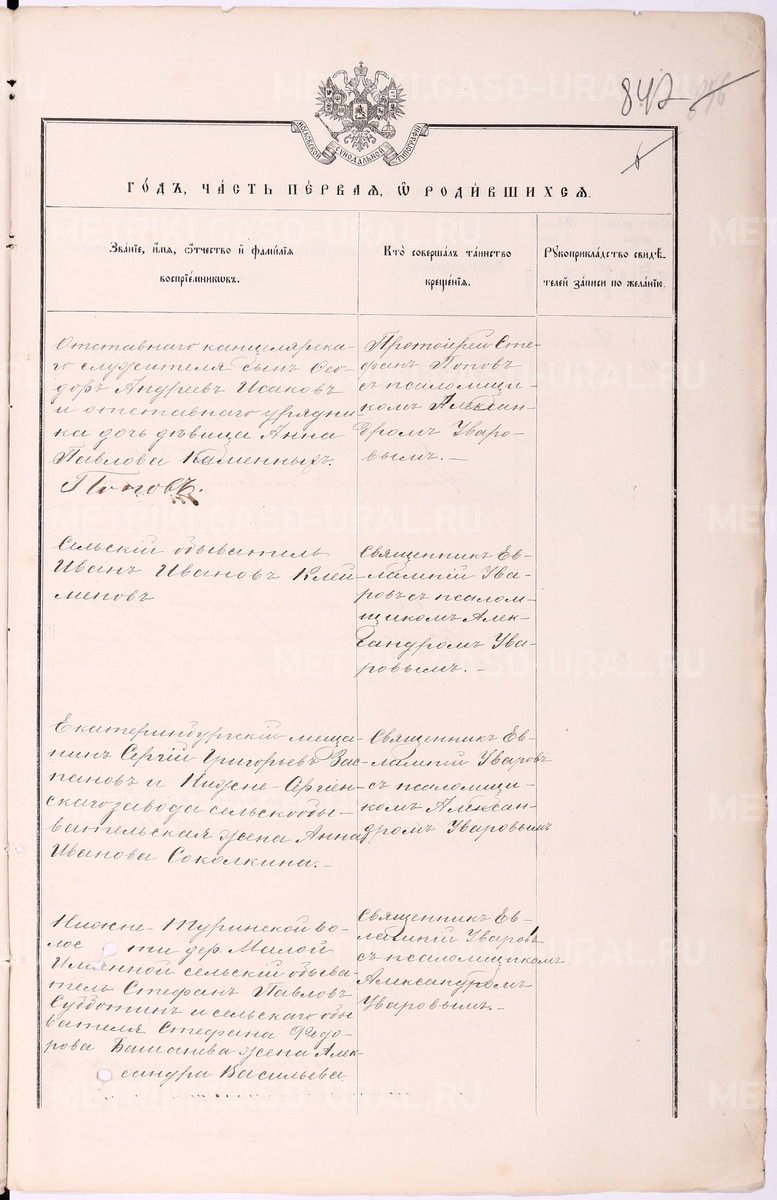 842
МОСКОВСКОЙ СѴНОДАЛЬНОЙ ТИПОГРАФІИ
ГО́ДЪ, ЧА́СТЬ ПЕ́РВАЯ, Ѽ РОДИ́ВШИХСЯ.
Зва́ніе, и́мя, ѻ҆́тчество и҆ фами́лія
воспріе́мниковъ.
Кто̀ соверша́лъ та́инство
креще́нія.
Рꙋкоприкла́дство свидѣ́-
телей за́писи по жела́нію.
Отставнаго канцелярска-
го служителя сынъ Ѳео-
доръ Андреевъ Исаковъ
и отставнаго урядни-
ка дочь дѣвица Анна
Павлова Каменныхъ.
Поповъ.
Протоіерей Сте-
фанъ Поповъ
съ псаломщи-
комъ Алексан-
дромъ Уваро-
вымъ.—
Сельскій обыватель
Иванъ Ивановъ Клей-
меновъ
Священникъ Ев-
лампій Ува-
ровъ съ псалом-
щикомъ Алек-
сандромъ Ува-
ровымъ.—
Екатеринбургскій меща-
нинъ Сергій Григорьевъ
пановъ и Нижне-Сергин-
скаго завода сельск. обы-
вательская жена Анна
Иванова Соколкина.—
Священникъ Ев-
лампій Уваровъ
съ псаломщи-
комъ Алексан-
дромъ Уваровымъ
Нижне-Туринской во-
лости дер. Малой
Именной сельскій обыва-
тель Стефанъ Павловъ
Субботинъ и сельскаго обы-
вателя Стефана Ѳедо-
рова жена Алек-
сандра Васильева
Священникъ Ев-
лампій Уваровъ
съ псаломщикомъ
Александромъ
Уваровымъ.—
METRIKI.GASO-URAL.RU